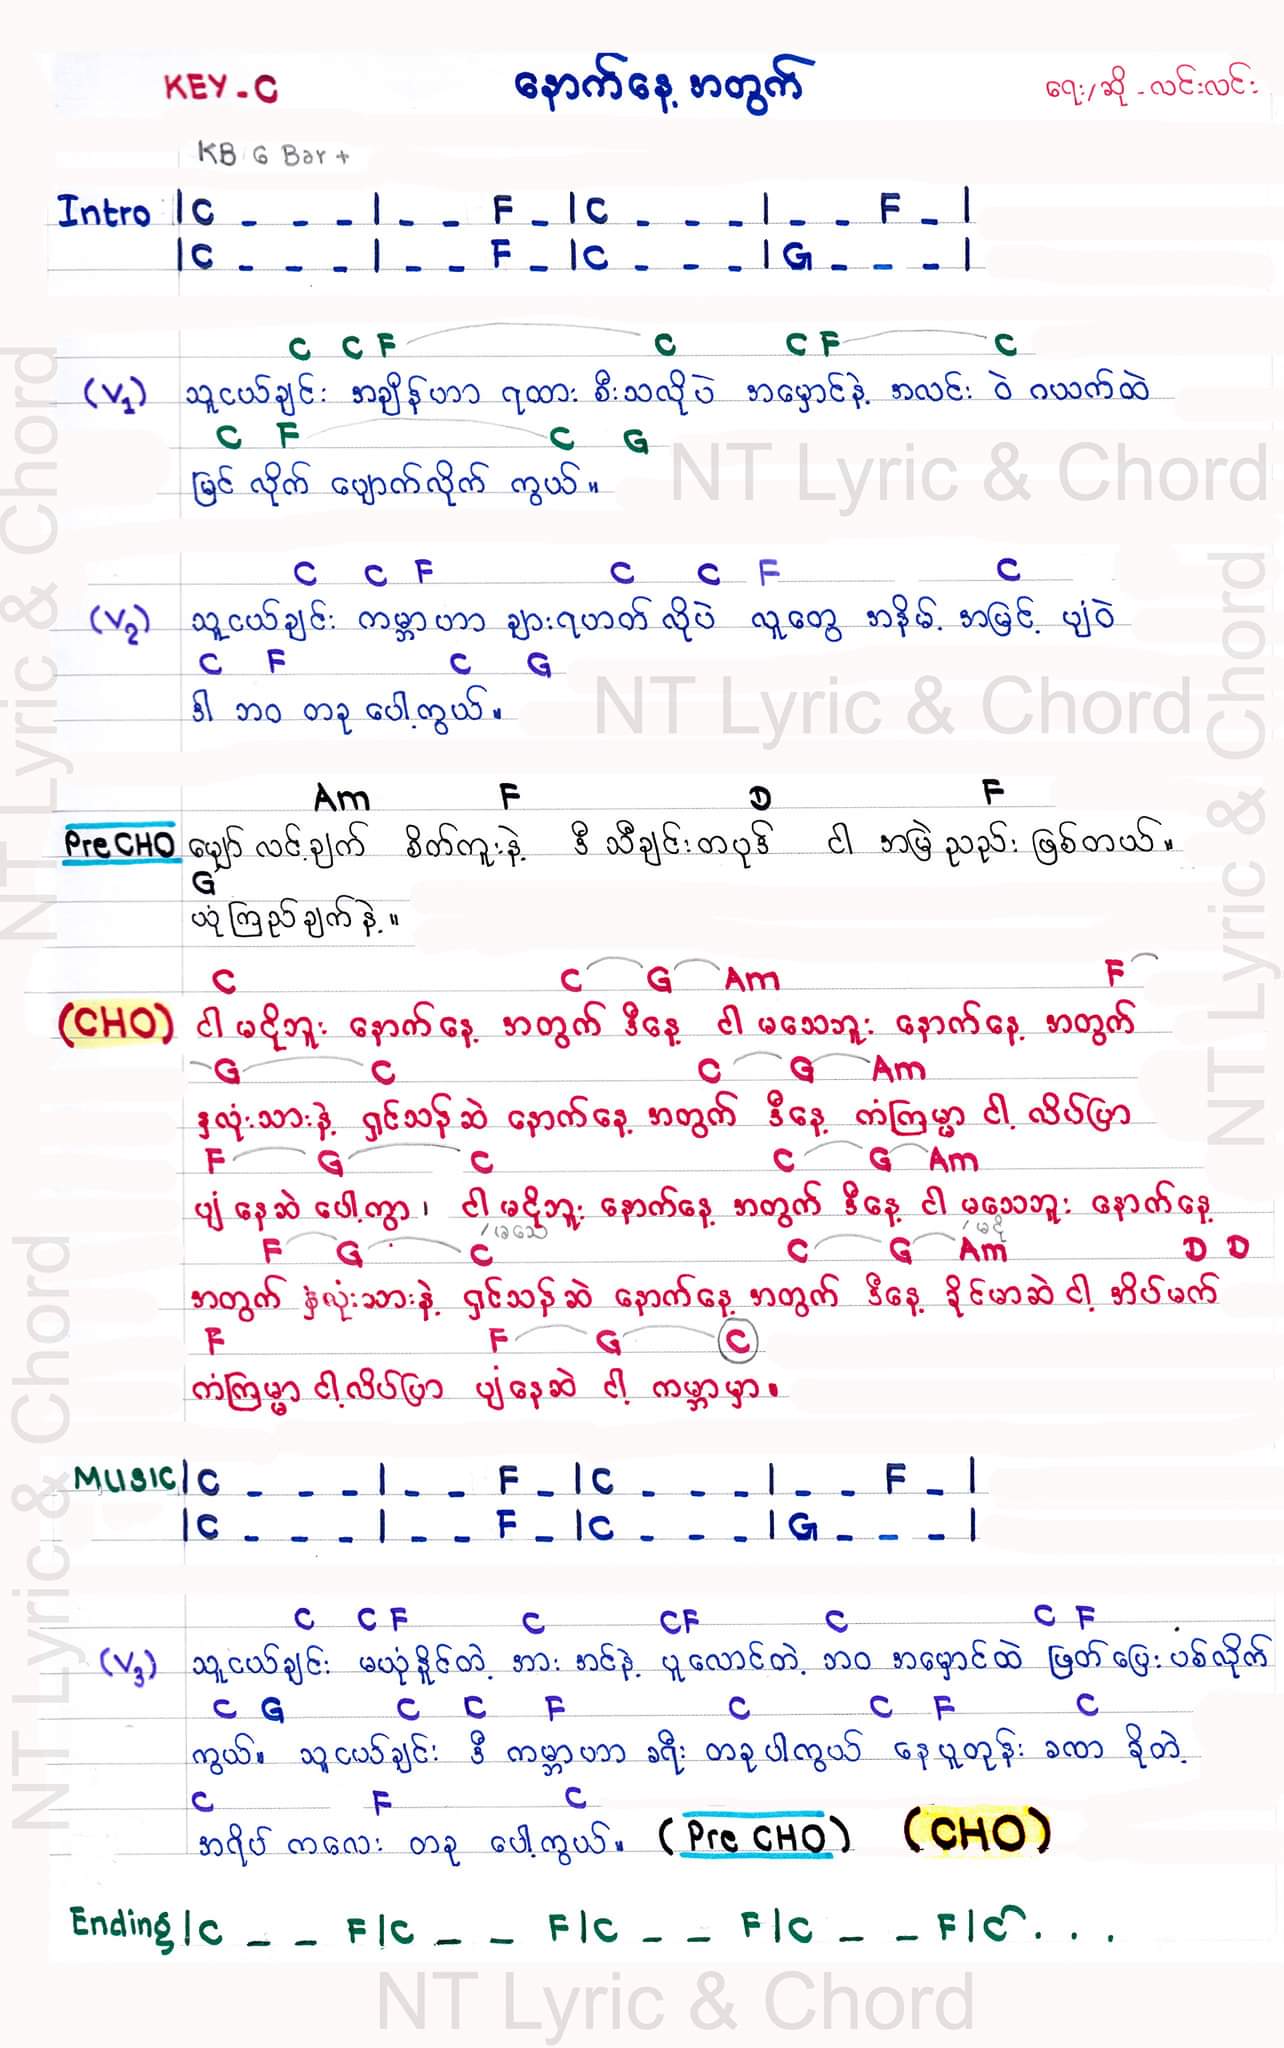 KEY - C နောက်နေ့ အတွက် ရေး/ဆို - လင်းလင်း
KB 6 Bar +
Intro |C _ _ _ | _ _ F _ |C _ _ _ | _ _ F _ |
|C _ _ _ | _ _ F _ |C _ _ _ |G _ _ _ |
C C F C C F C
(V1) သူငယ်ချင်း အချိန်ဟာ ရထား စီးသလိုပဲ အမှောင်နဲ့ အလင်း ဝဲ ဂယက်ထဲ
C F C G
မြင် လိုက် ပျောက်လိုက် ကွယ်။
C C F C C F C
(V2) သူငယ်ချင်း ကမ္ဘာဟာ ချားရဟတ် လိုပဲ လူတွေ အနိမ့် အမြင့် ပျံဝဲ
C F C G
ဒါ ဘဝ တခု ပေါ့ကွယ်။
Am F D F
Pre CHO မျှော် လင့်ချက် စိတ်ကူးနဲ့ ဒီ သီချင်းတပုဒ် ငါ အမြဲ ညည်း ဖြစ်တယ်။
G
ယုံကြည်ချက်နဲ့။
C C G Am F
(CHO) ငါ မငိုဘူး နောက်နေ့ အတွက် ဒီနေ့ ငါ မသေဘူး နောက်နေ့ အတွက်
G C C G Am
နှလုံးသားနဲ့ ရှင်သန်ဆဲ နောက်နေ့ အတွက် ဒီနေ့ ကံကြမ္မာ ငါ့ လိပ်ပြာ
F G C C G Am
ပျံ နေဆဲ ပေါ့ကွာ၊ ငါ မငိုဘူး နောက်နေ့ အတွက် ဒီနေ့ ငါ မသေဘူး နောက်နေ့
/မသေ /မငို
F G C C G Am D D
အတွက် နှလုံးသားနဲ့ ရှင်သန်ဆဲ နောက်နေ့ အတွက် ဒီနေ့ ခိုင်မာဆဲ ငါ့ အိပ်မက်
F F G C
ကံကြမ္မာ ငါ့လိပ်ပြာ ပျံနေဆဲ ငါ့ ကမ္ဘာမှာ။
MUSIC |C _ _ _ | _ _ F _ |C _ _ _ | _ _ F _ |
|C _ _ _ | _ _ F _ |C _ _ _ |G _ _ _ |
C C F C CF C C F
(V3) သူငယ်ချင်း မယုံနိုင်တဲ့ အား အင်နဲ့ ပူလောင်တဲ့ ဘဝ အမှောင်ထဲ ဖြတ်ပြေးပစ်လိုက်
C G C C F C C F C
ကွယ်။ သူငယ်ချင်း ဒီ ကမ္ဘာဟာ ခရီး တခုပါကွယ် နေပူတုန်း ခဏ ခိုတဲ့
C F C
အရိပ် ကလေး တခု ပေါ့ကွယ်။ (Pre CHO) (CHO)
Ending |C _ _ F|C _ _ F|C _ _ F|C _ _ F|C . . .
NT Lyric & Chord
NT Lyric & Chord
NT Lyric & Chord
NT Lyric & Chord
NT Lyric & Chord
NT Lyric & Chord